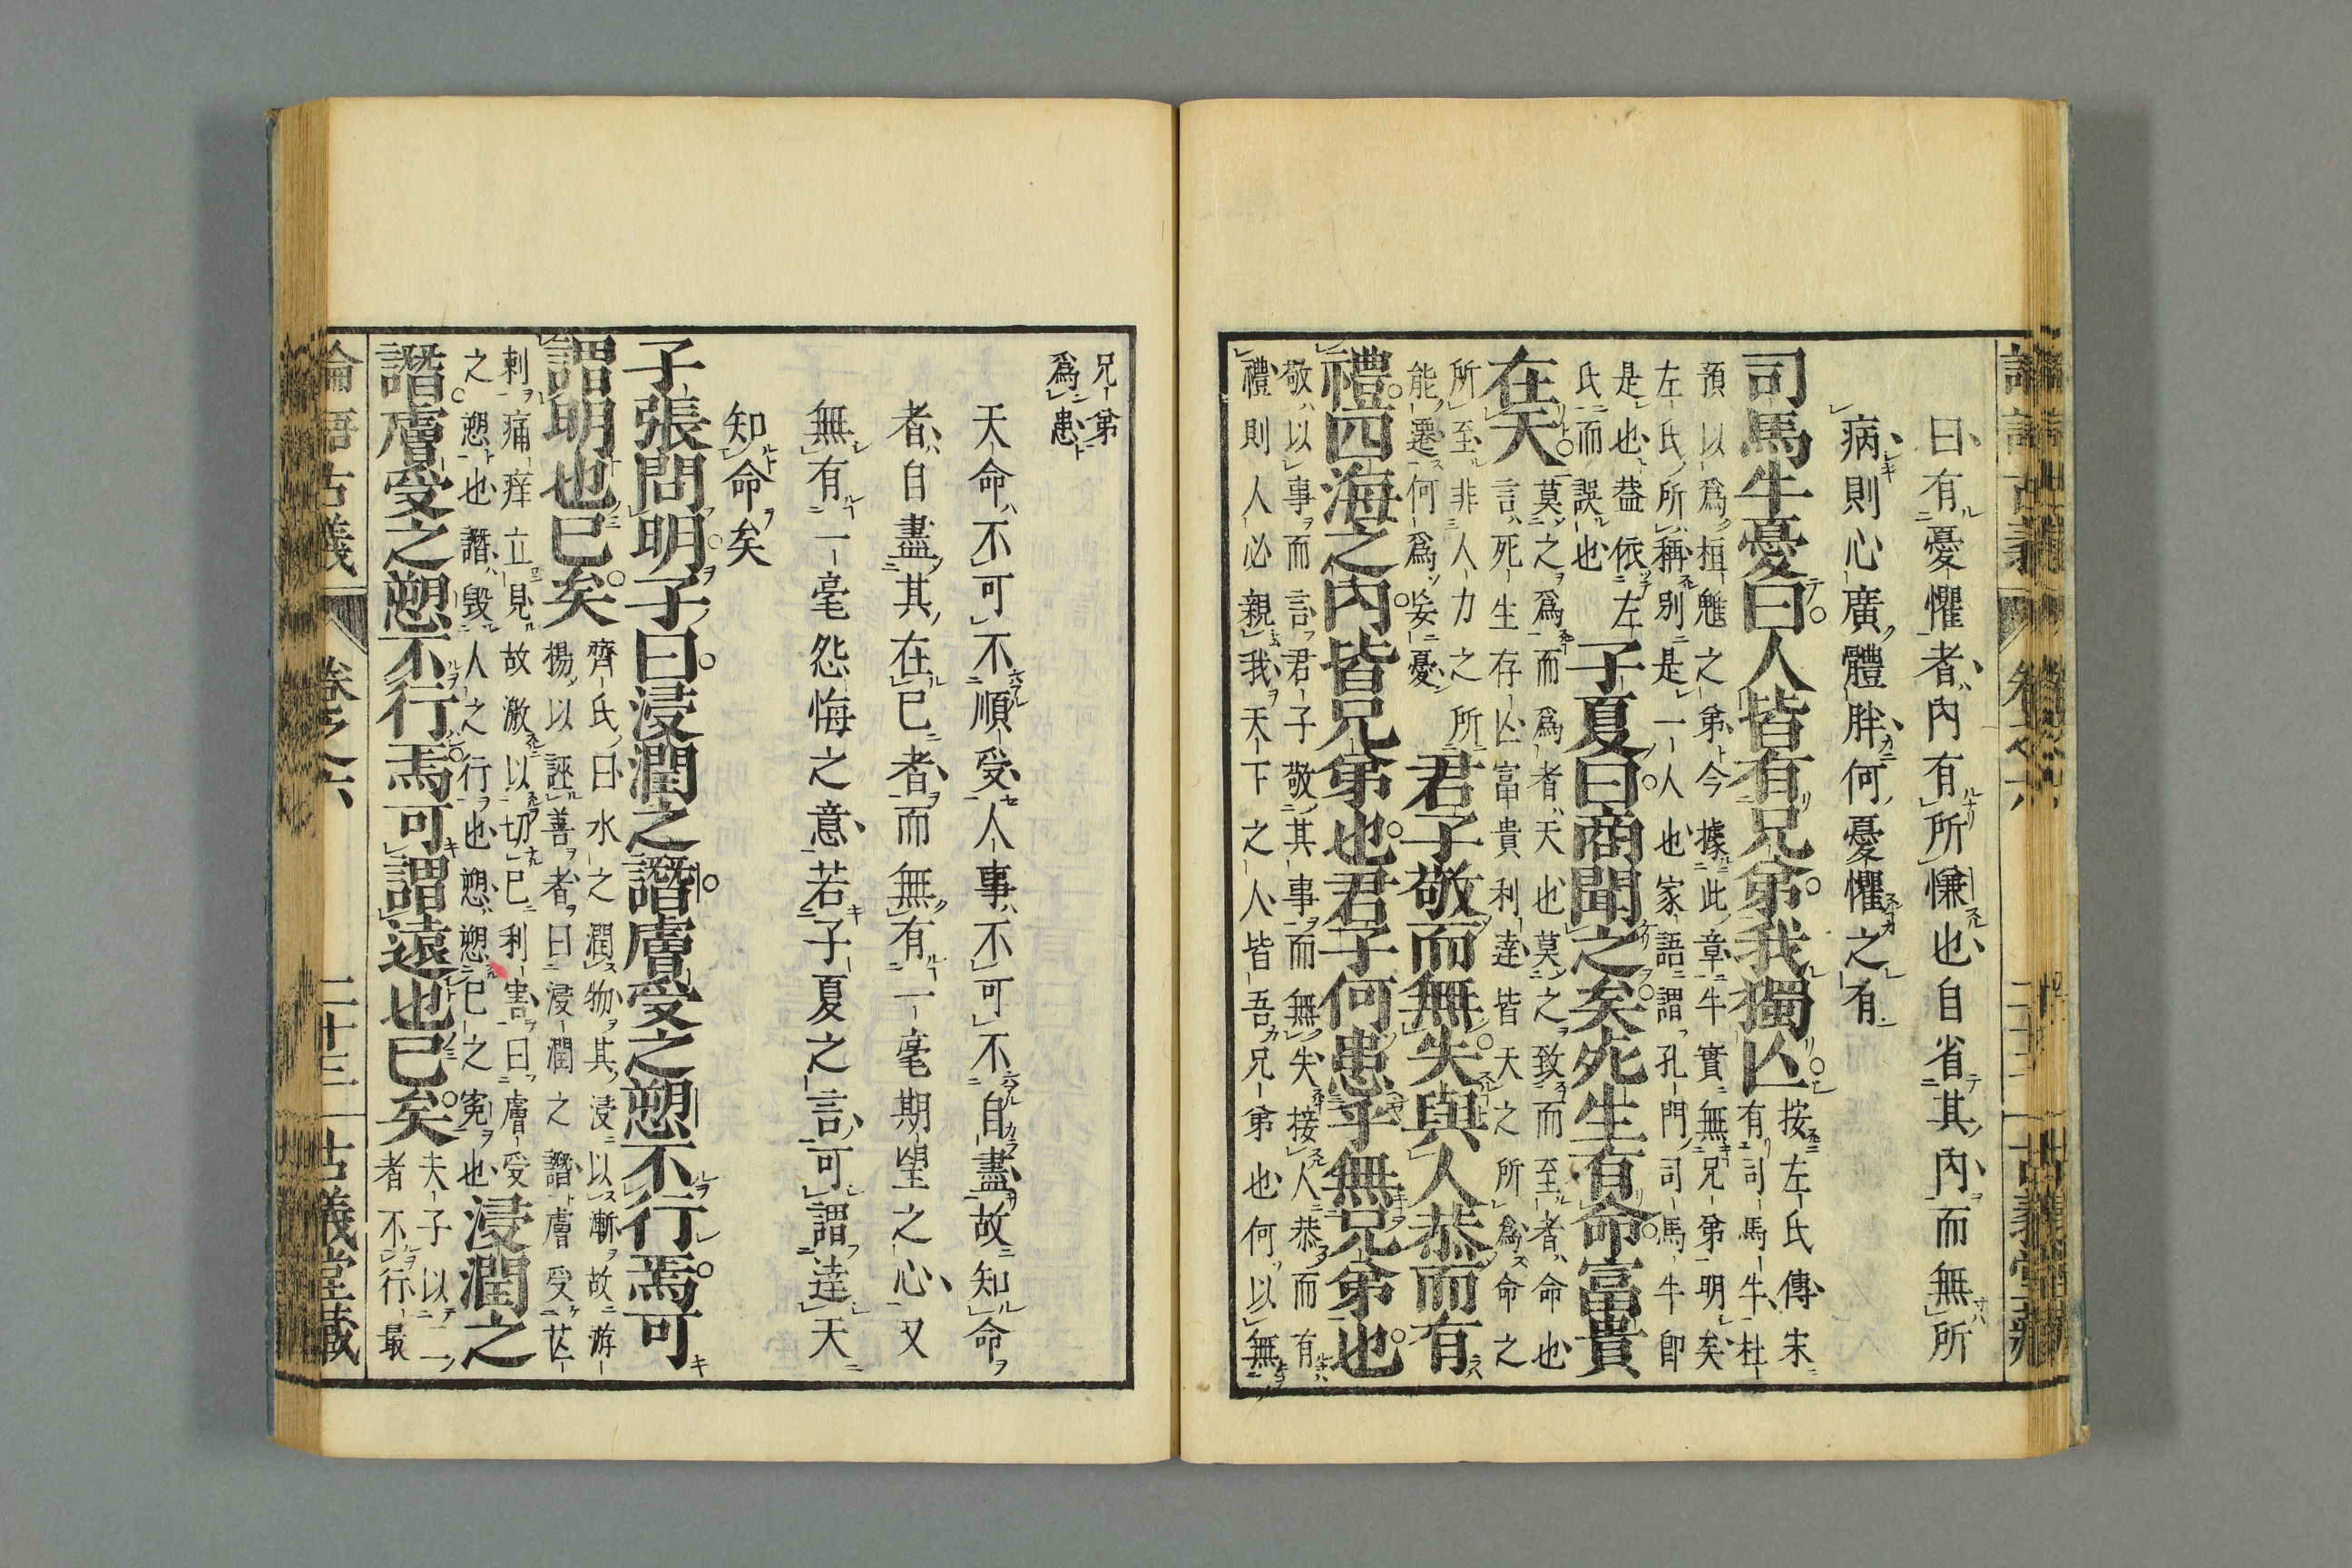 論語古義 卷之六 古義堂藏
曰有憂懼者內有所慊也自省其內而無所
病則心廣體胖何憂懼之有
司馬牛憂曰人皆有兄弟我獨亡
按左氏傳宋
有司馬牛杜
預以爲桓魋之弟今據此章牛實無兄弟明矣
左氏所稱別是一人也家語謂孔門司馬牛卽
是也葢依左
氏而誤也
子夏曰商聞之矣死生有命富貴
在天
莫之爲而爲者天也莫之致而至者命也
言死生存亡富貴利達皆天之所爲命之
所至非人力之所
能遷何爲妄憂
君子敬而無失與人恭而有
禮四海之內皆兄弟也君子何患乎無兄弟也
敬以事而言君子敬其事而無失接人恭而有
禮則人必親我天下之人皆吾兄弟也何以無
兄弟
爲患
天命不可不順受人事不可不自盡故知命
者自盡其在己者而無有一毫期望之心又
無有一毫怨悔之意若子夏之言可謂達天
知命矣
子張問明子曰浸潤之譖膚受之愬不行焉可
謂明也已矣
齊氏曰水之潤物其浸以漸故游
揚以誣善者曰浸潤之譖膚受芒
刺痛痒立見故激以切己利害曰膚受
之愬也譖毀人之行也愬愬己之寃也
浸潤之
譖膚受之愬不行焉可謂遠也已矣
夫子以一
者不行最
論語古義 卷之六 二十三 古義堂藏